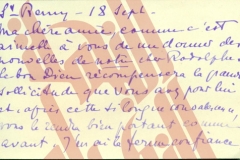 St Remy - 18 Sept.
Ma chère amie, comme c'est
aimable à vous de me donner des
nouvelles de notre cher Rodolphe
le bon Dieu récompensera la grande
sollicitude que vous avez pour lui
et, après cette si longue
vous le rendra bien portant comme
avant. J'en ai la ferme confiance